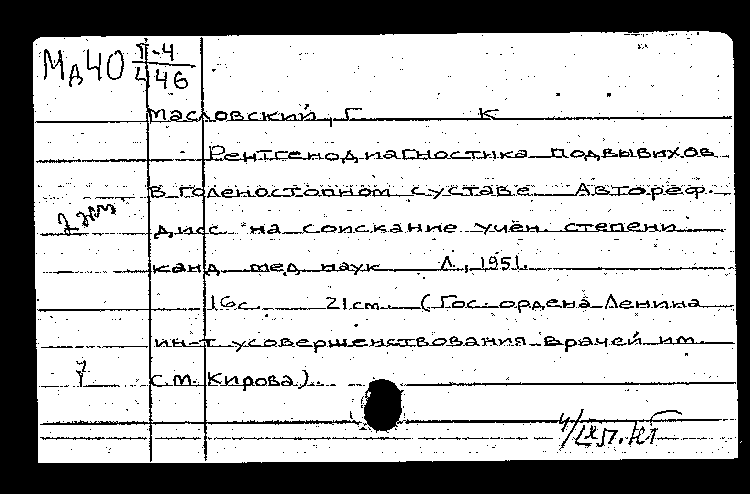 Мд40 Г-4
446
Масловский, Г. К
Рентгенодиагностика подвывихов
в голеностопном суставе. Автореф.
дисс. на соискание учён. степени
2 экз.
канд. мед. наук Л., 1951.
16с. 21см. (Гос. ордена Ленина
ин-т усовершенствования врачей им.
7 С.М. Кирова).